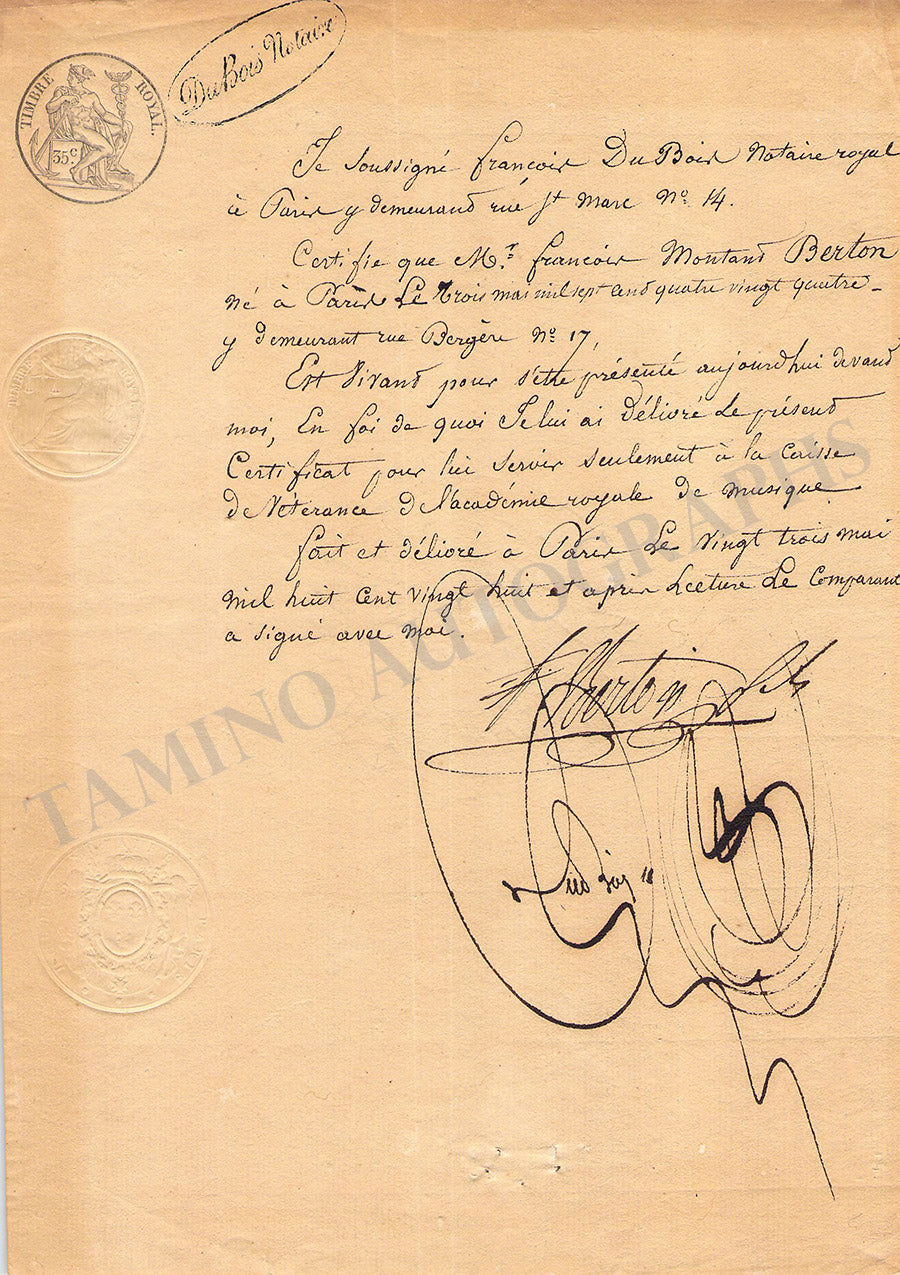 TIMBRE ROYAL.
35c
DuBois Notaire
Je soussigné françois DuBois Notaire royal
à Paris y demeurand rue St Marc No. 14.
Certifie que Mr. françois Montand Berton
né à Paris Le trois mai mil sept cend quatre vingt quatre
y demeurant rue Bergère No. 17,
Est Vivand pour s'etre présenté aujourd'hui devand
moi, En foi de quoi Je lui ai Délivré Le présend
Certificat pour lui servir seulement à la Caisse
de Vétérance de l'académie royale de musique
fait et délivré à Paris Le vingt trois mai
mil huit Cent vingt huit et après Lecture Le Comparant
a signé avec moi.
f. Berton fils
TAMINO AUTOGRAPHS